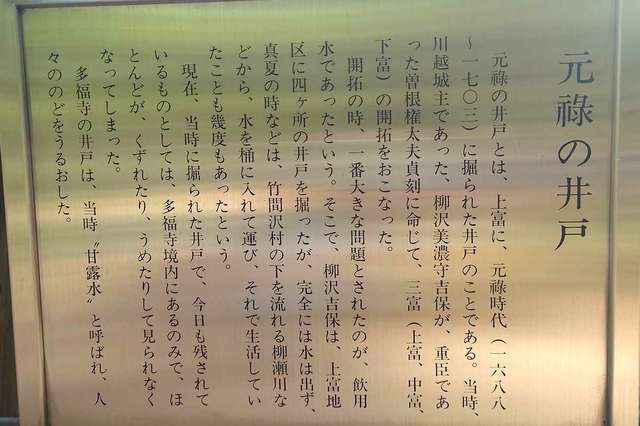 元祿の井戸
元祿の井戸とは、上富に、元祿時代（一六八八
～一七〇三）に掘られた井戸のことである。当時、
川越城主であった、柳沢美濃守吉保が、重臣であ
った曽根権太夫貞刻に命じて、三富（上富、中富、
下富）の開拓をおこなった。
開拓の時、一番大きな問題とされたのが、飲用
水であったという。そこで、柳沢吉保は、上富地
区に四ヶ所の井戸を掘ったが、完全には水は出ず、
真夏の時などは、竹間沢村の下を流れる柳瀬川な
どから、水を桶に入れて運び、それで生活してい
たことも幾度もあったという。
現在、当時に掘られた井戸で、今日も残されて
いるものとしては、多福寺境内にあるのみで、ほ
とんどが、くずれたり、うめたりして見られなく
なってしまった。
多福寺の井戸は、当時〝甘露水〟と呼ばれ、人
々ののどをうるおした。